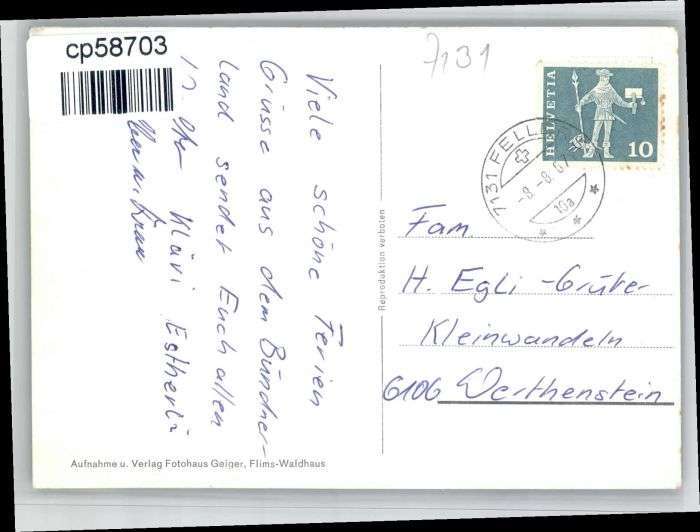 cp58703
7131
HELVETIA
10
7131 FELL
-8.-8.67
10a
Viele schöne Ferien
Grüsse aus dem Bündner-
land sendet Euch allen
Klävi Estherli
Reproduktion verboten
Fam
H. Egli-Grüter
Kleinwandeln
6106 Werthenstein
Aufnahme u. Verlag Fotohaus Geiger, Flims-Waldhaus